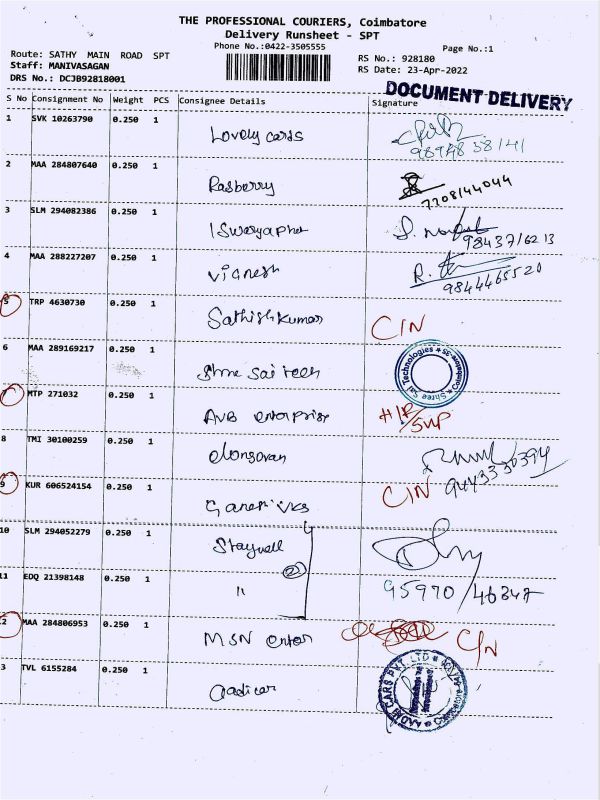 THE PROFESSIONAL COURIERS, Coimbatore
Delivery Runsheet - SPT
Phone No.:0422-3505555
Page No.:1
Route: SATHY MAIN ROAD SPT
Staff: MANIVASAGAN
DRS No.: DCJB92818001
RS No.: 928180
RS Date: 23-Apr-2022
DOCUMENT DELIVERY
S No Consignment No Weight PCS Consignee Details Signature
1 SVK 10263790 0.250 1 Lovely cards
2 MAA 284807640 0.250 1 Rasberry 7708144044
3 SLM 294082386 0.250 1 98437/6213
4 MAA 288227207 0.250 1 Vignesh R. 9844465520
5 TRP 4630730 0.250 1 Sathishkumar C/N
6 MAA 289169217 0.250 1 Shree Sai Tech Shree Sai Technologies * SE-Coimbatore *
7 MTP 271032 0.250 1 AVB enterprise
8 TMI 30100259 0.250 1 elangovan
9 KUR 606524154 0.250 1 C/N
10 SLM 294052279 0.250 1 Staywell
(2)
11 EDQ 21398148 0.250 1 " 95970/46347
12 MAA 284806953 0.250 1 MSN enter C/N
3 TVL 6155284 0.250 1 Aadicar AADHI CARS PVT. LTD